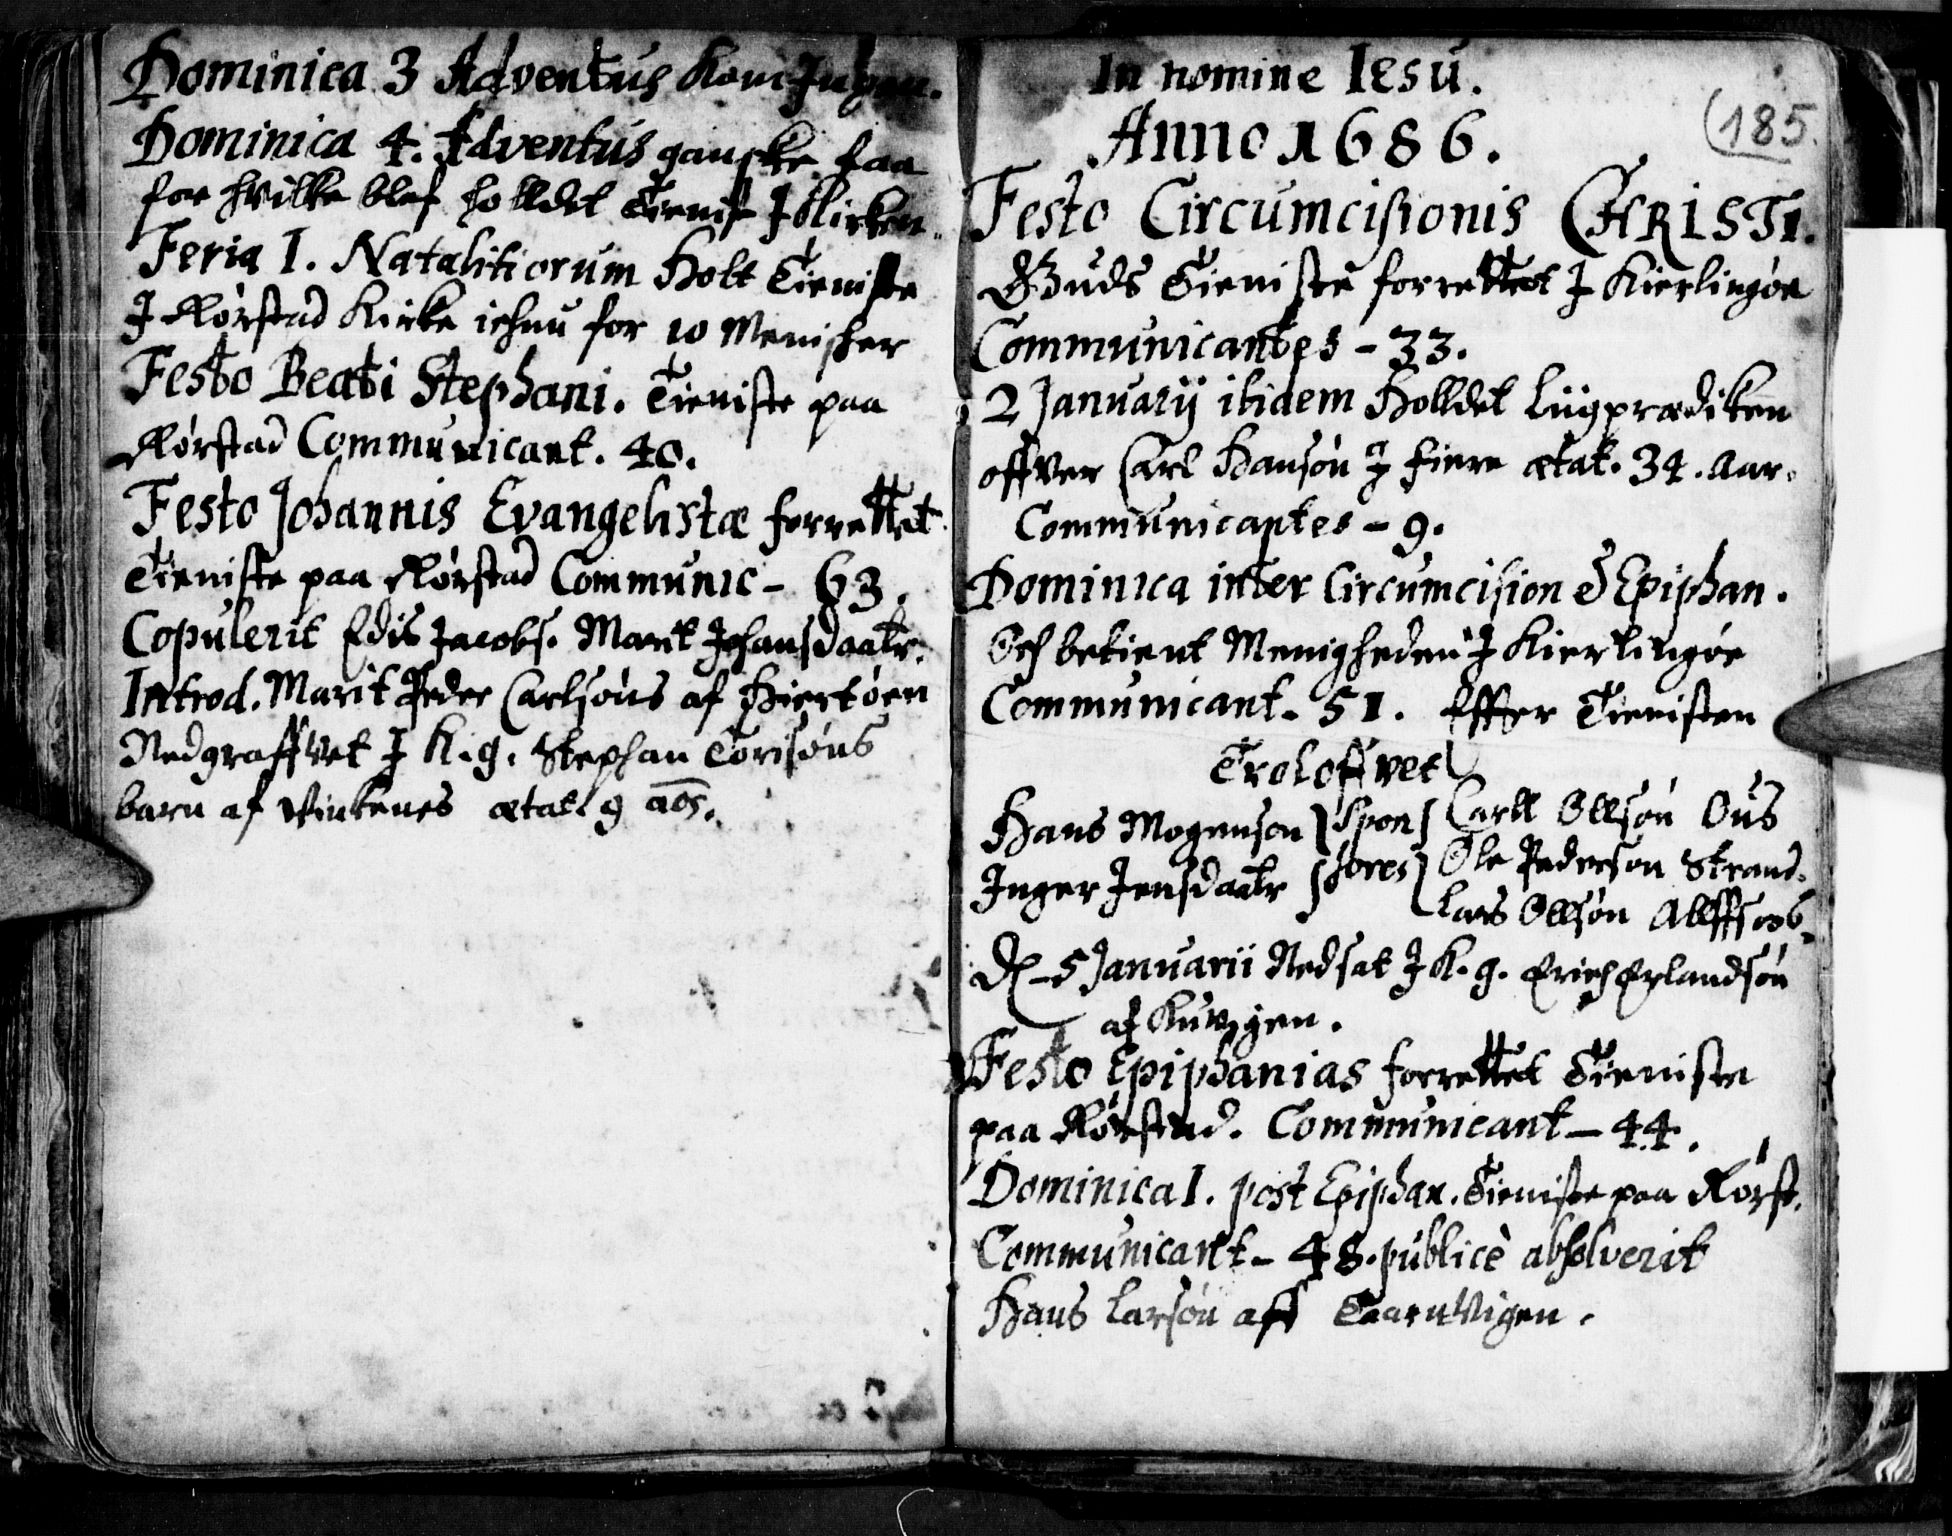 Dominica 3 Adventus kom Ingen.
Dominica 4. Adventus ganske faa
for hvilke blef holldet Tienist I Kirken.
Feria I. Natalitiorum Holt Tieniste
I Rørstad Kirke ichun for 10 Menisher
Festo Beati Stephani. Tieniste paa
Rørstad Communicant. 40.
Festo Johannis Evangelistæ forrettet
Tieniste paa Rørstad Communic - 63.
Copulerit Edis Jacobs. Marit Johansdaatr.
Introd. Marit Peder Carlsøns af Hiertøen
Nedgraffvet I K.g. Stephan Torisøns
barn af Vinkenes ætat 9 aōs.
In nomine Iesu.
Anno 1686.
(185.
Festo Circumcisionis CHRISTI.
Guds Tieniste forrettet I Kierlingøe
Communicantes - 33.
2 Januarij ibidem Holldet Liigprædiken
offver Carl Hansøn I fiere ætat. 34. Aar.
Communicantes - 9.
Dominica inter Circumcision & Epiphan.
Och betient Menigheden I Kierlingøe
Communicant. 51. Effter Tienisten
Troloffvet
Hans Mogenson } Spon { Carll Ollsøn Ous
Inger Jensdaatr } sores { Ole Pederson Strand.
Lars Ollsøn
D. 5 Januarii Nedsat I K.g. Erich Erlandsøn
af
Festo Epiphanias forrettet Tieniste
paa Rørstad. Communicant - 44.
Dominica I. post Epiphan. Tieniste paa Rørst.
Communicant - 48. publicè absolverit
Hans Larsøn aff Taarnvigen.